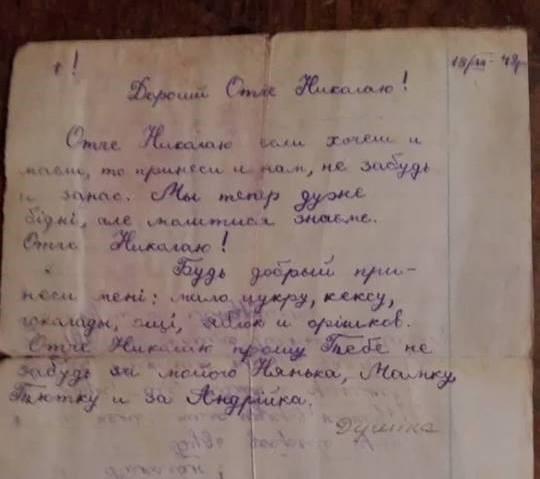 18/XII - 48р
Дорогий Отче Николаю!
Отче Николаю если хочеш и
маєш, то принеси и нам, не забудь
и за нас. Мы тепер дуже
бідні, але молитися знаєме.
Отче Николаю!
Будь добрый при-
неси мені: мало цукру, кексу,
чоколяды, яблок и орішков.
Отче Николаю прошу Тебе не
забудь за мойого Нянька, Мамку,
Тютку и за Андрійка.